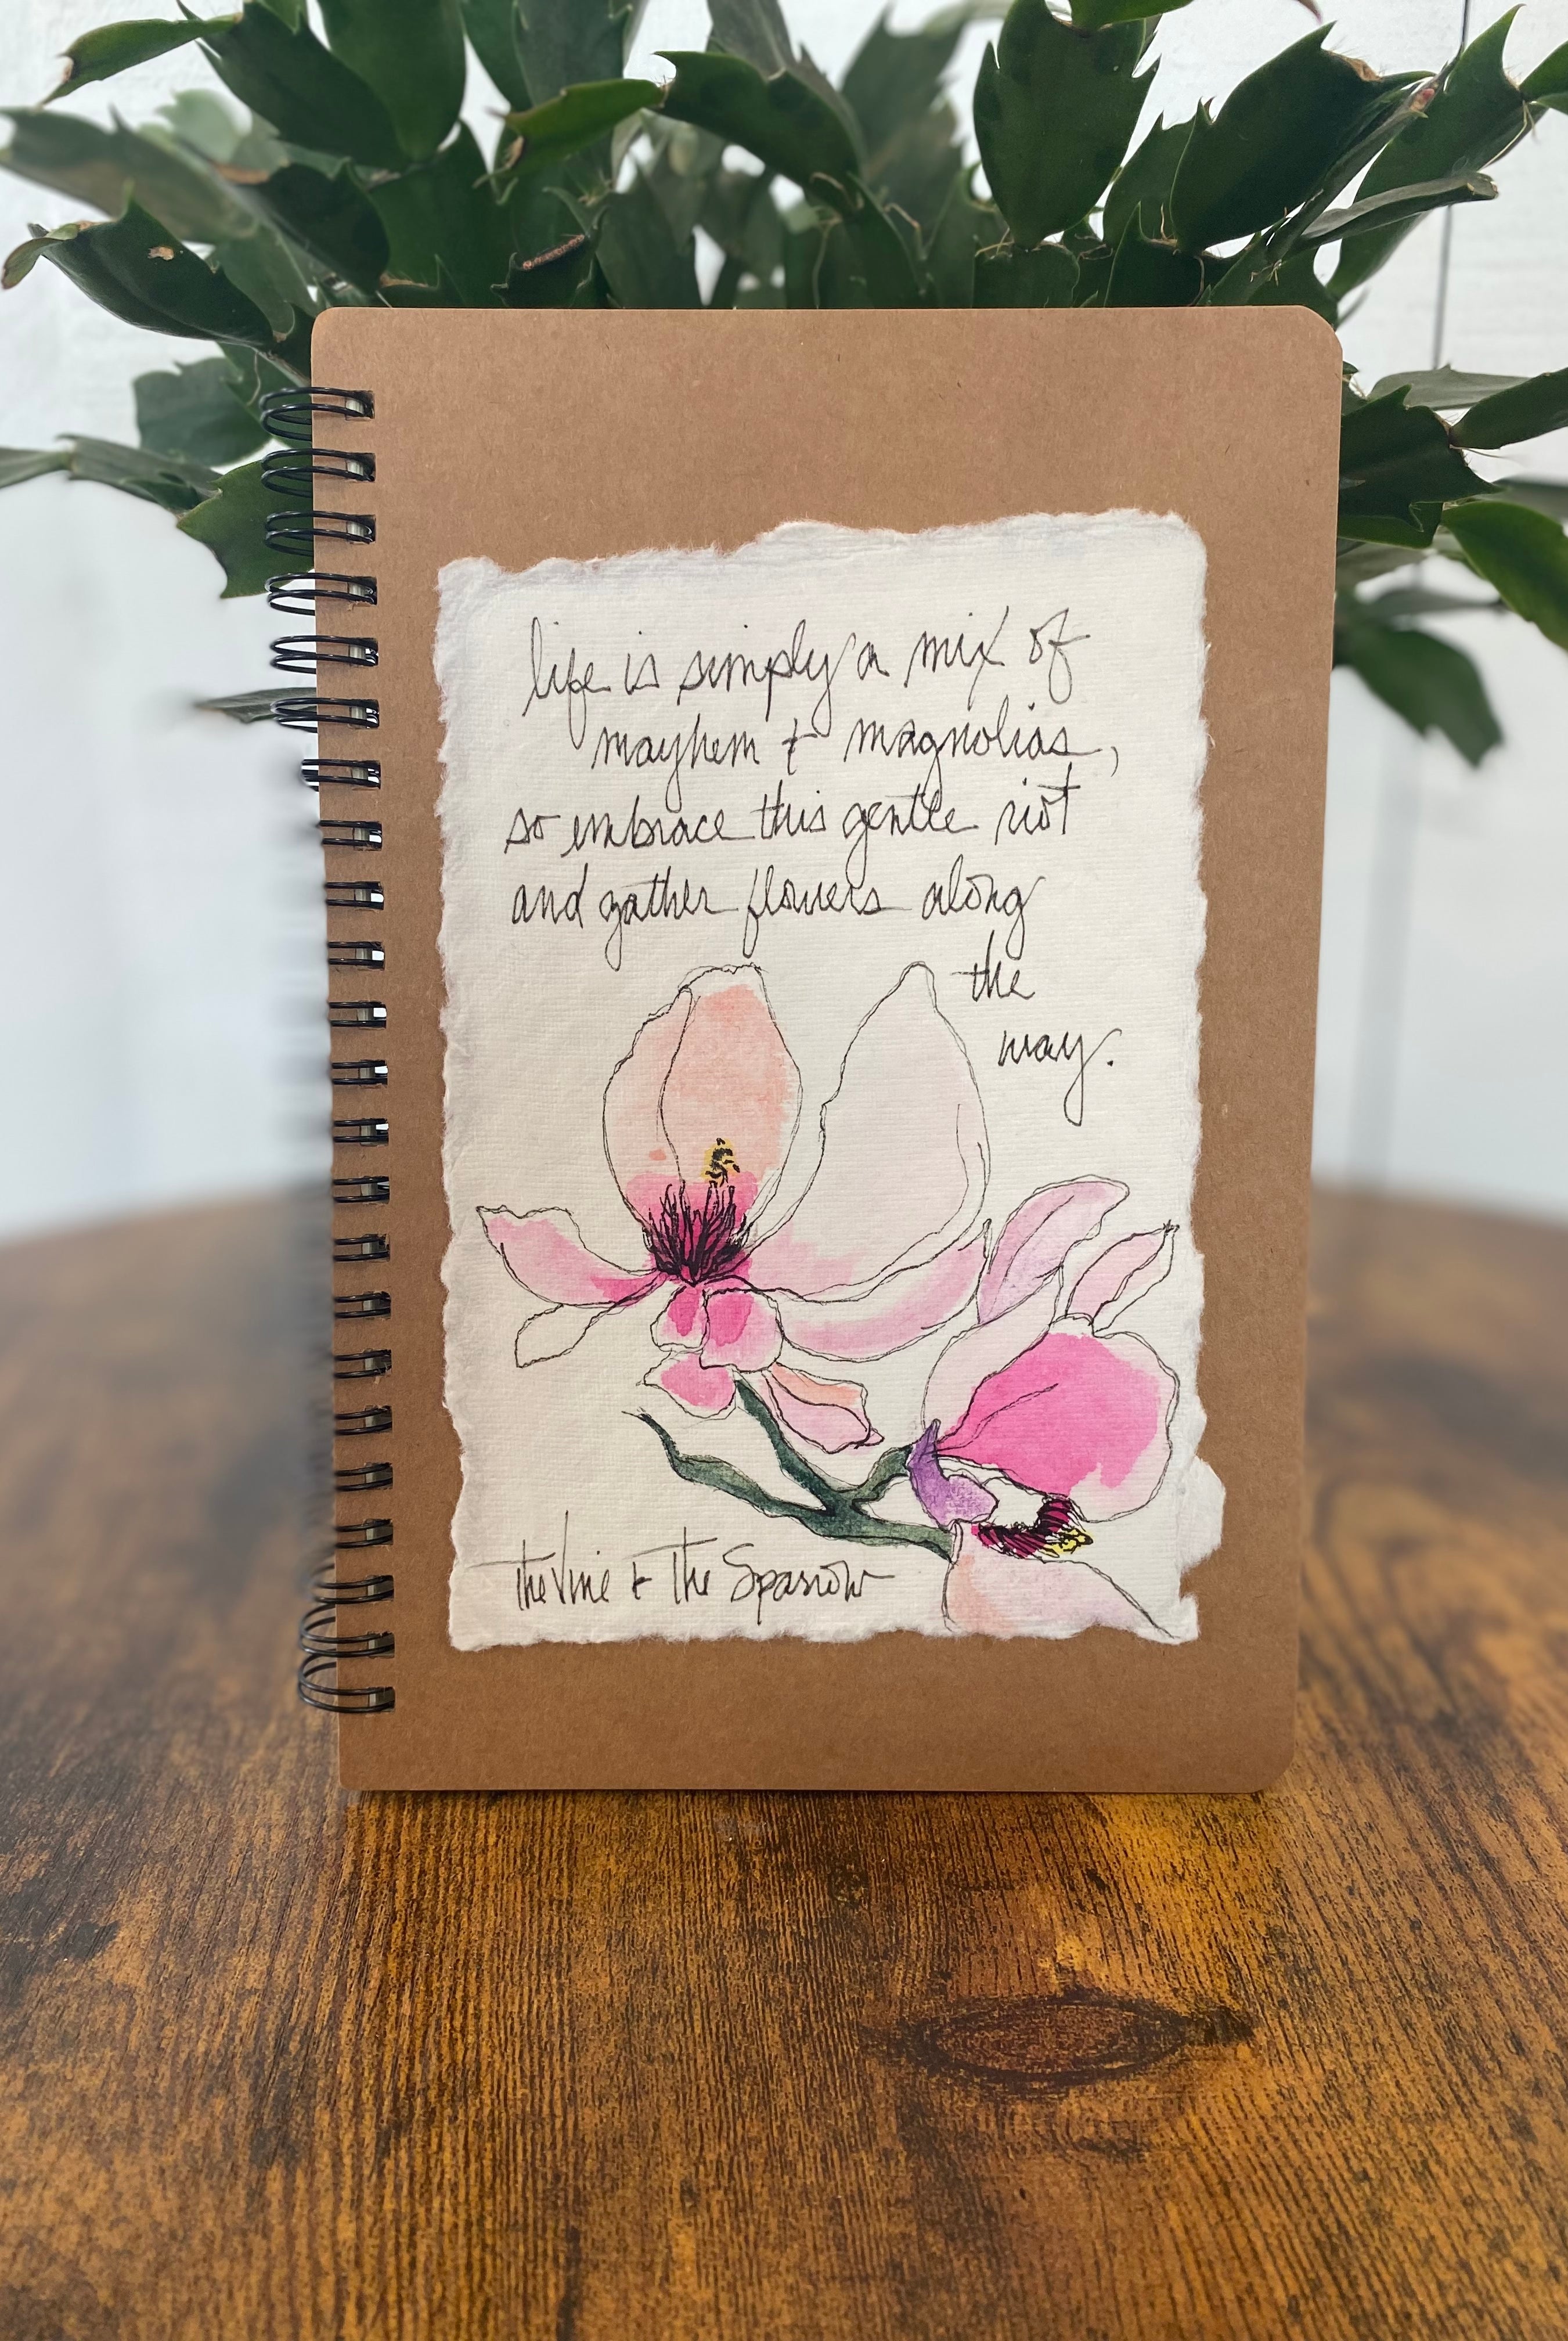 life is simply a mix of
mayhem + magnolias,
so embrace this gentle riot
and gather flowers along
the
way.
The Vine + The Sparrow